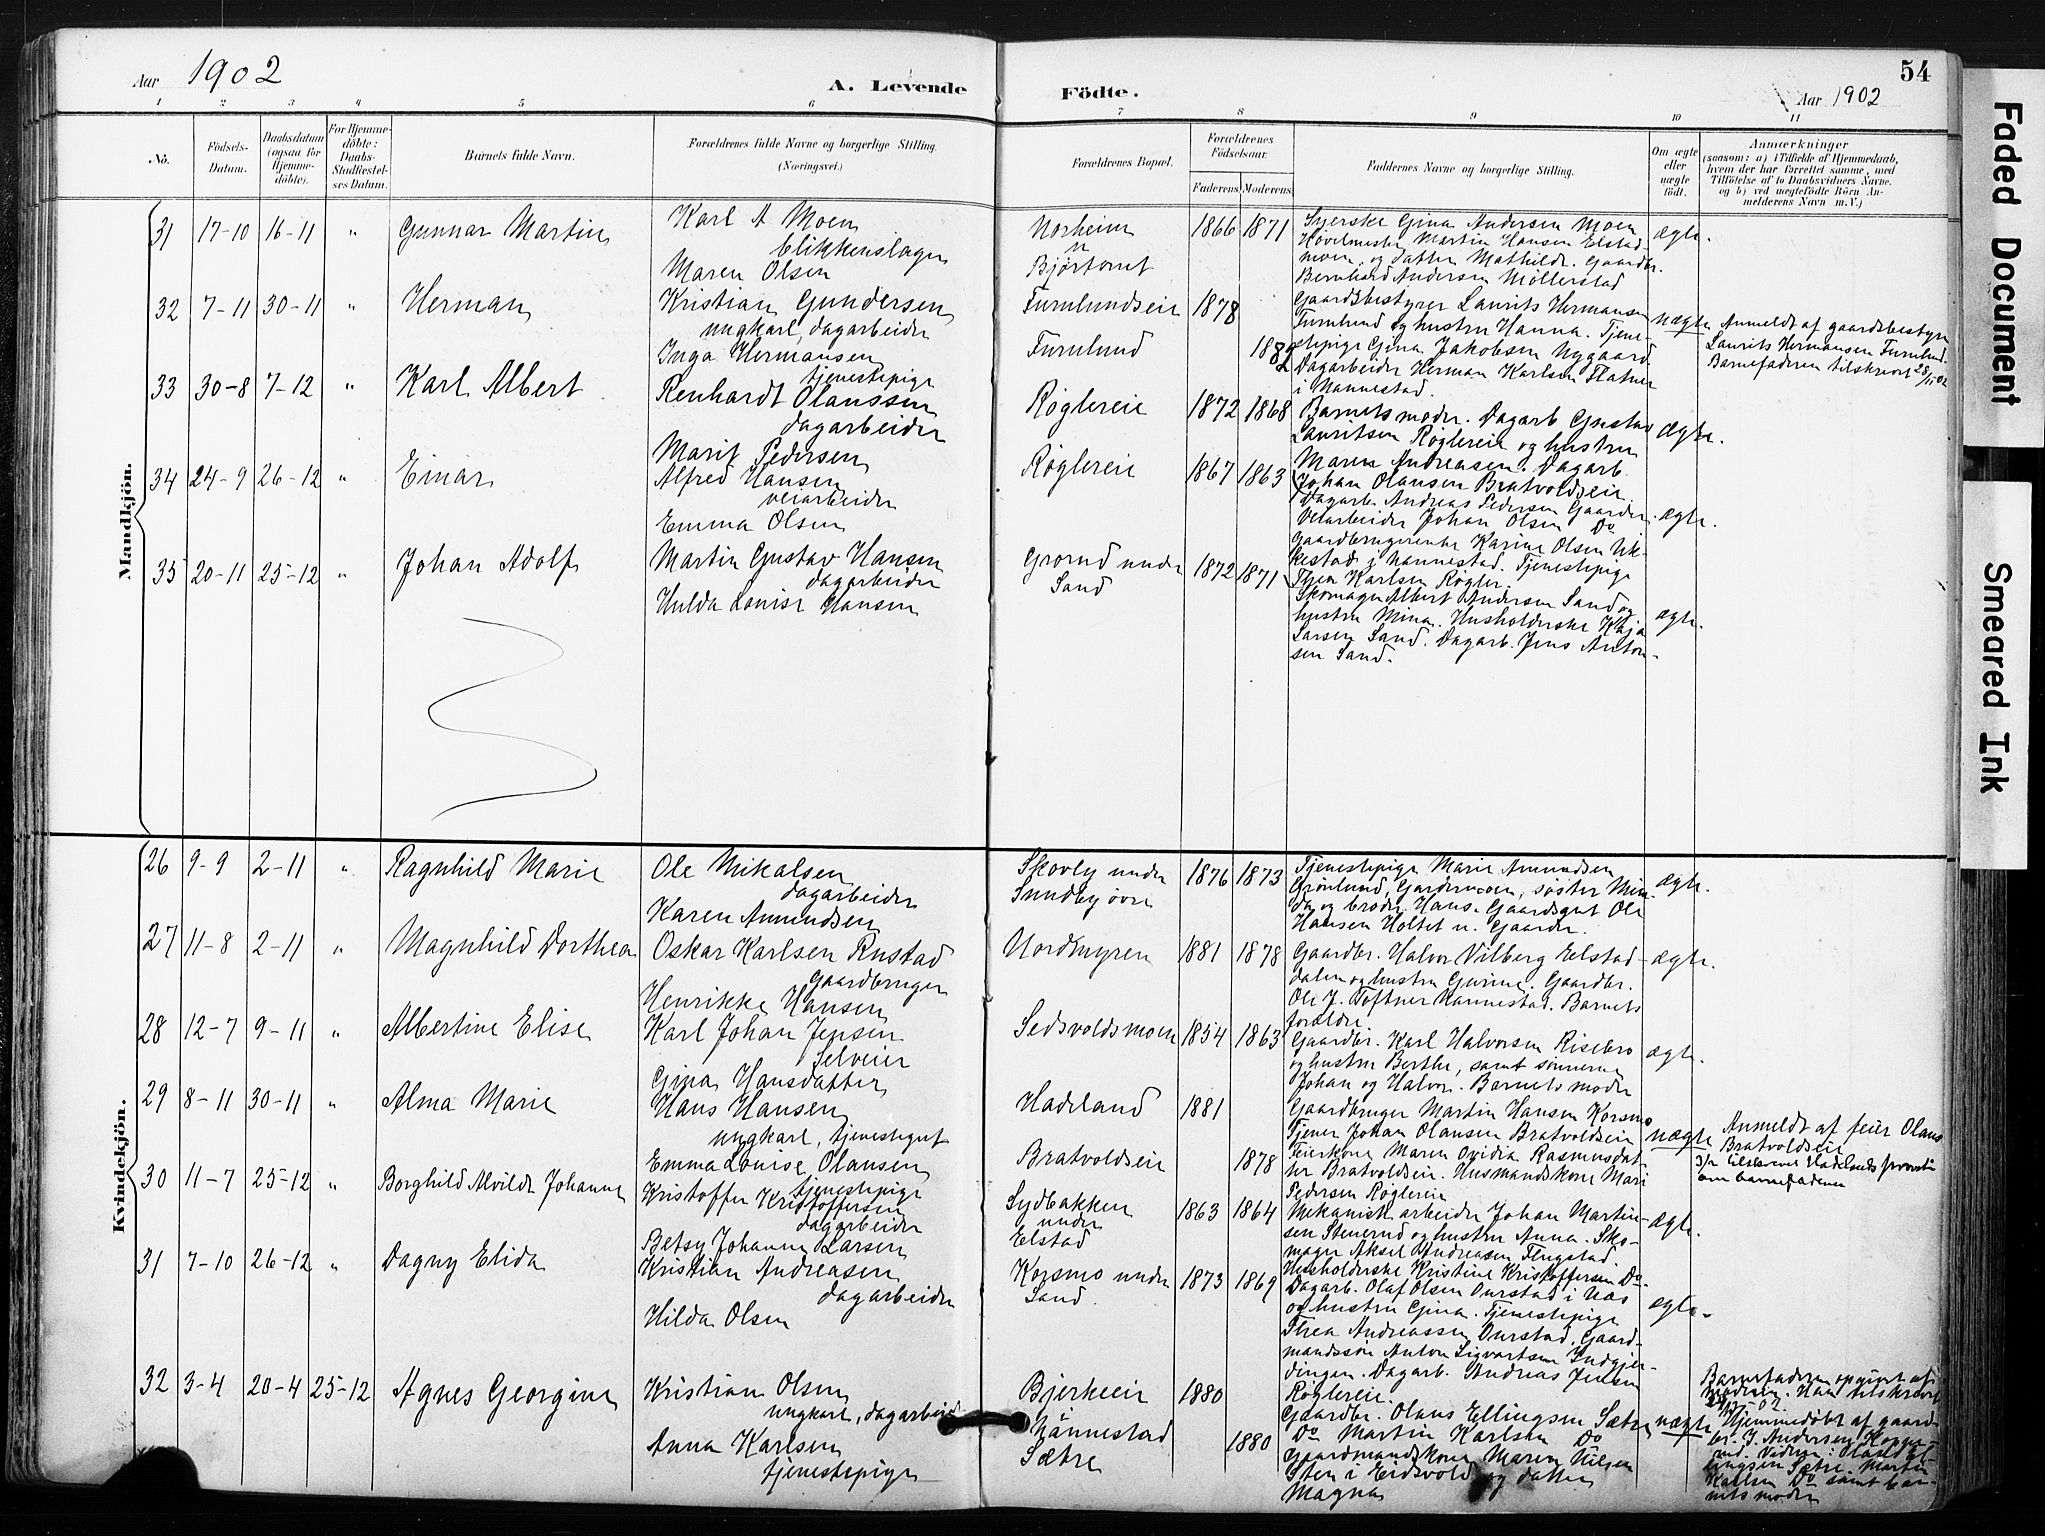 54
Aar 1902
A. Levende Födte.
Aar 1902
1 2 3 4 5 6 7 8 9 10 11
No.
Födsels-Datum.
Daabsdatum
(ogsaa for
Hjemme-
döbte).
For Hjemme-
döbte:
Daabs-
Stadfæstel-
ses Datum.
Barnets fulde Navn.
Forældrenes fulde Navne og borgerlige Stilling.
(Næringsvei.)
Forældrenes Bopæl.
Forældrenes
Födselsaar.
Faderens Moderens
Faddernes Navne og borgerlige Stilling.
Om ægte
eller
uægte
födt.
Anmærkninger
(saasom: a) i Tilfælde af Hjemmedaab,
hvem der har forrettet samme, med
Tilföielse af to Daabsvidners Navne,
og b) ved uægtefödte Börn An-
melderens Navn m. V.)
Mandkjön.
31 17-10 16-11 " Gunnar Martin
Karl A Moen
blikkenslager
Maren Olsen
Norheim
n
Bjørtomt
1866 1871
Syerske Gina Andersen Moen
Høvelmester Martin Hansen Elstad-
moen, og datter Mathilde. Gaardbr.
Bernhard Andersen Møllerstad
ægte.
32 7-11 30-11 " Herman
Kristian Gundersen
ungkarl, dagarbeider
Inga Hermansen
tjenestepige
Furulundseie
Furulund
1878
1882
Gaardsbestyrer Laurits Hermansen
Furulund og hustru Hanna. Tjene-
stepige Gina Jakobsen Nygaard
Dagarbeider Herman Karlsen Flatner
i Nannestad.
uægte
Anmeldt af gaardsbestyrer
Laurits Hermansen Furulund.
Barnefaderen tilskrevet 28/11 02
33 30-8 7-12 " Karl Albert
Renhardt Olanssen
dagarbeider
Marit Pedersen
Røglereie
1872 1868
Barnets moder. Dagarb Gustav
Lauritsen Røglereie og hustru
Maren Andreasen. Dagarb.
Johan Olansen Bratvoldseie.
ægte.
34 24-9 26-12 " Einar
Alfred Hansen
veiarbeider
Emma Olsen
Røglereie
1867 1863
Dagarb. Andreas Pedersen Gaarder.
Veiarbeider Johan Olsen Do
Gaardbrugerenke Karine Olsen Uk-
kestad i Nannestad. Tjenestepige
Thea Karlsen Røgler.
ægte.
35 20-11 25-12 " Johan Adolf
Martin Gustav Hansen
dagarbeider
Hulda Louise Hansen
Grorud under
Sand
1872 1871
Skomager Albert Andersen Sand og
hustru Mina. Husholderske Kaja
Larsen Sand. Dagarb. Jens Anton-
sen Sand.
ægte.
Kvindekjön.
26 9-9 2-11 " Ragnhild Marie
Ole Mikalsen
dagarbeider
Karen Amundsen
Skovly under
Sundby øvre
1876 1873
Tjenestepige Marie Amundsen
Grønlund, Gardermoen, søster Min-
da og broder Hans. Gaardsgut Ole
Hansen Holtet u. Gaarder.
ægte.
27 11-8 2-11 " Magnhild Dorthea
Oskar Karlsen Rustad
Gaardbruger
Henrikke Hansen
Nordmyren
1881 1878
Gaardbr. Halvor Vilberg Elstad-
dalen og hustru Gurine. Gaardbr.
Ole J. Toftner Nannestad. Barnets
forældre
ægte.
28 12-7 9-11 " Albertine Elise
Karl Johan Jensen
Selveier
Gina Hansdatter
Sedsvoldsmoen
1854 1863
Gaardbr. Karl Halvorsen Risebro
og hustru Berthe, samt sønnerne
Johan og Halvor. Barnets moder
ægte.
29 8-11 30-11 " Alma Marie
Hans Hansen
ungkarl, tjenestegut
Emma Louise Olansen
tjenestepige
Hadeland
Bratvoldseie
1881
1878
Gaardbruger Martin Hansen Korsmo
Tjener Johan Olansen Bratvoldseie
Feierkone Maren Ovidia Rasmusdat-
ter Bratvoldseie. Husmandskone Mari
Pedersen Røglereie
uægte
Anmeldt af feier Olaus
Bratvoldseie
3/12 tilskrevet Hadelands provsti
om barnefaderen
30 11-7 25-12 " Borghild Alvilde Johanne
Kristoffer Kristoffersen
dagarbeider
Betsy Johanne Larsen
Sydbakken
under
Elstad
1863 1864
Mekanisk arbeider Johan Martin-
sen Stenerud og hustru Anna. Sko-
mager Aksel Andreasen Flugstad.
Husholderske Kristine Kristoffersen Do.
ægte.
31 7-10 26-12 " Dagny Elida
Kristian Andreasen
dagarbeider
Hilda Olsen
Korsmo under
Sand.
1873 1869
Dagarb. Olaf Olsen Ourstad i Næs
og hustru Gina. Tjenestepige
Thea Andreassen Ourstad. Gaard-
mandssøn Anton Sigvartsen Indgjer-
dingen. Dagarb. Andreas Jensen
Røglereie.
ægte.
32 3-4 20-4 25-12 Agnes Georgine
Kristian Olsen
ungkarl, dagarbeid
Anna Karlsen
tjenestepige
Bjerkeeie
Nannestad
Sætre
1880
1880
Gaardbr. Olaus Ellingsen Sætre
Do Martin Karlsen Do
Gaardmandskone Maren Nilsen
Sten i Eidsvold og datter
Magna
uægte
Barnefaderen opgivet af
moderen. Han tilskrevet
02.
Hjemmedøbt af gaard-
br. J. Andersen
Vidner: Olaus El-
lingsen Sætre. Martin
Karlsen Do samt bar-
nets moder
Faded Document
Smeared Ink